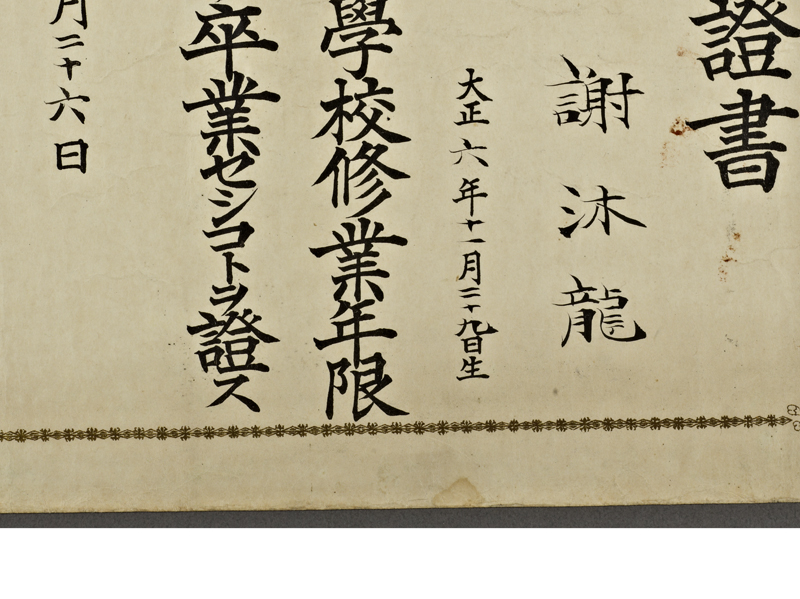 證書
謝沐龍
大正六年十一月二十九日生
學校修業年限
卒業セシコトヲ證ス
月二十六日